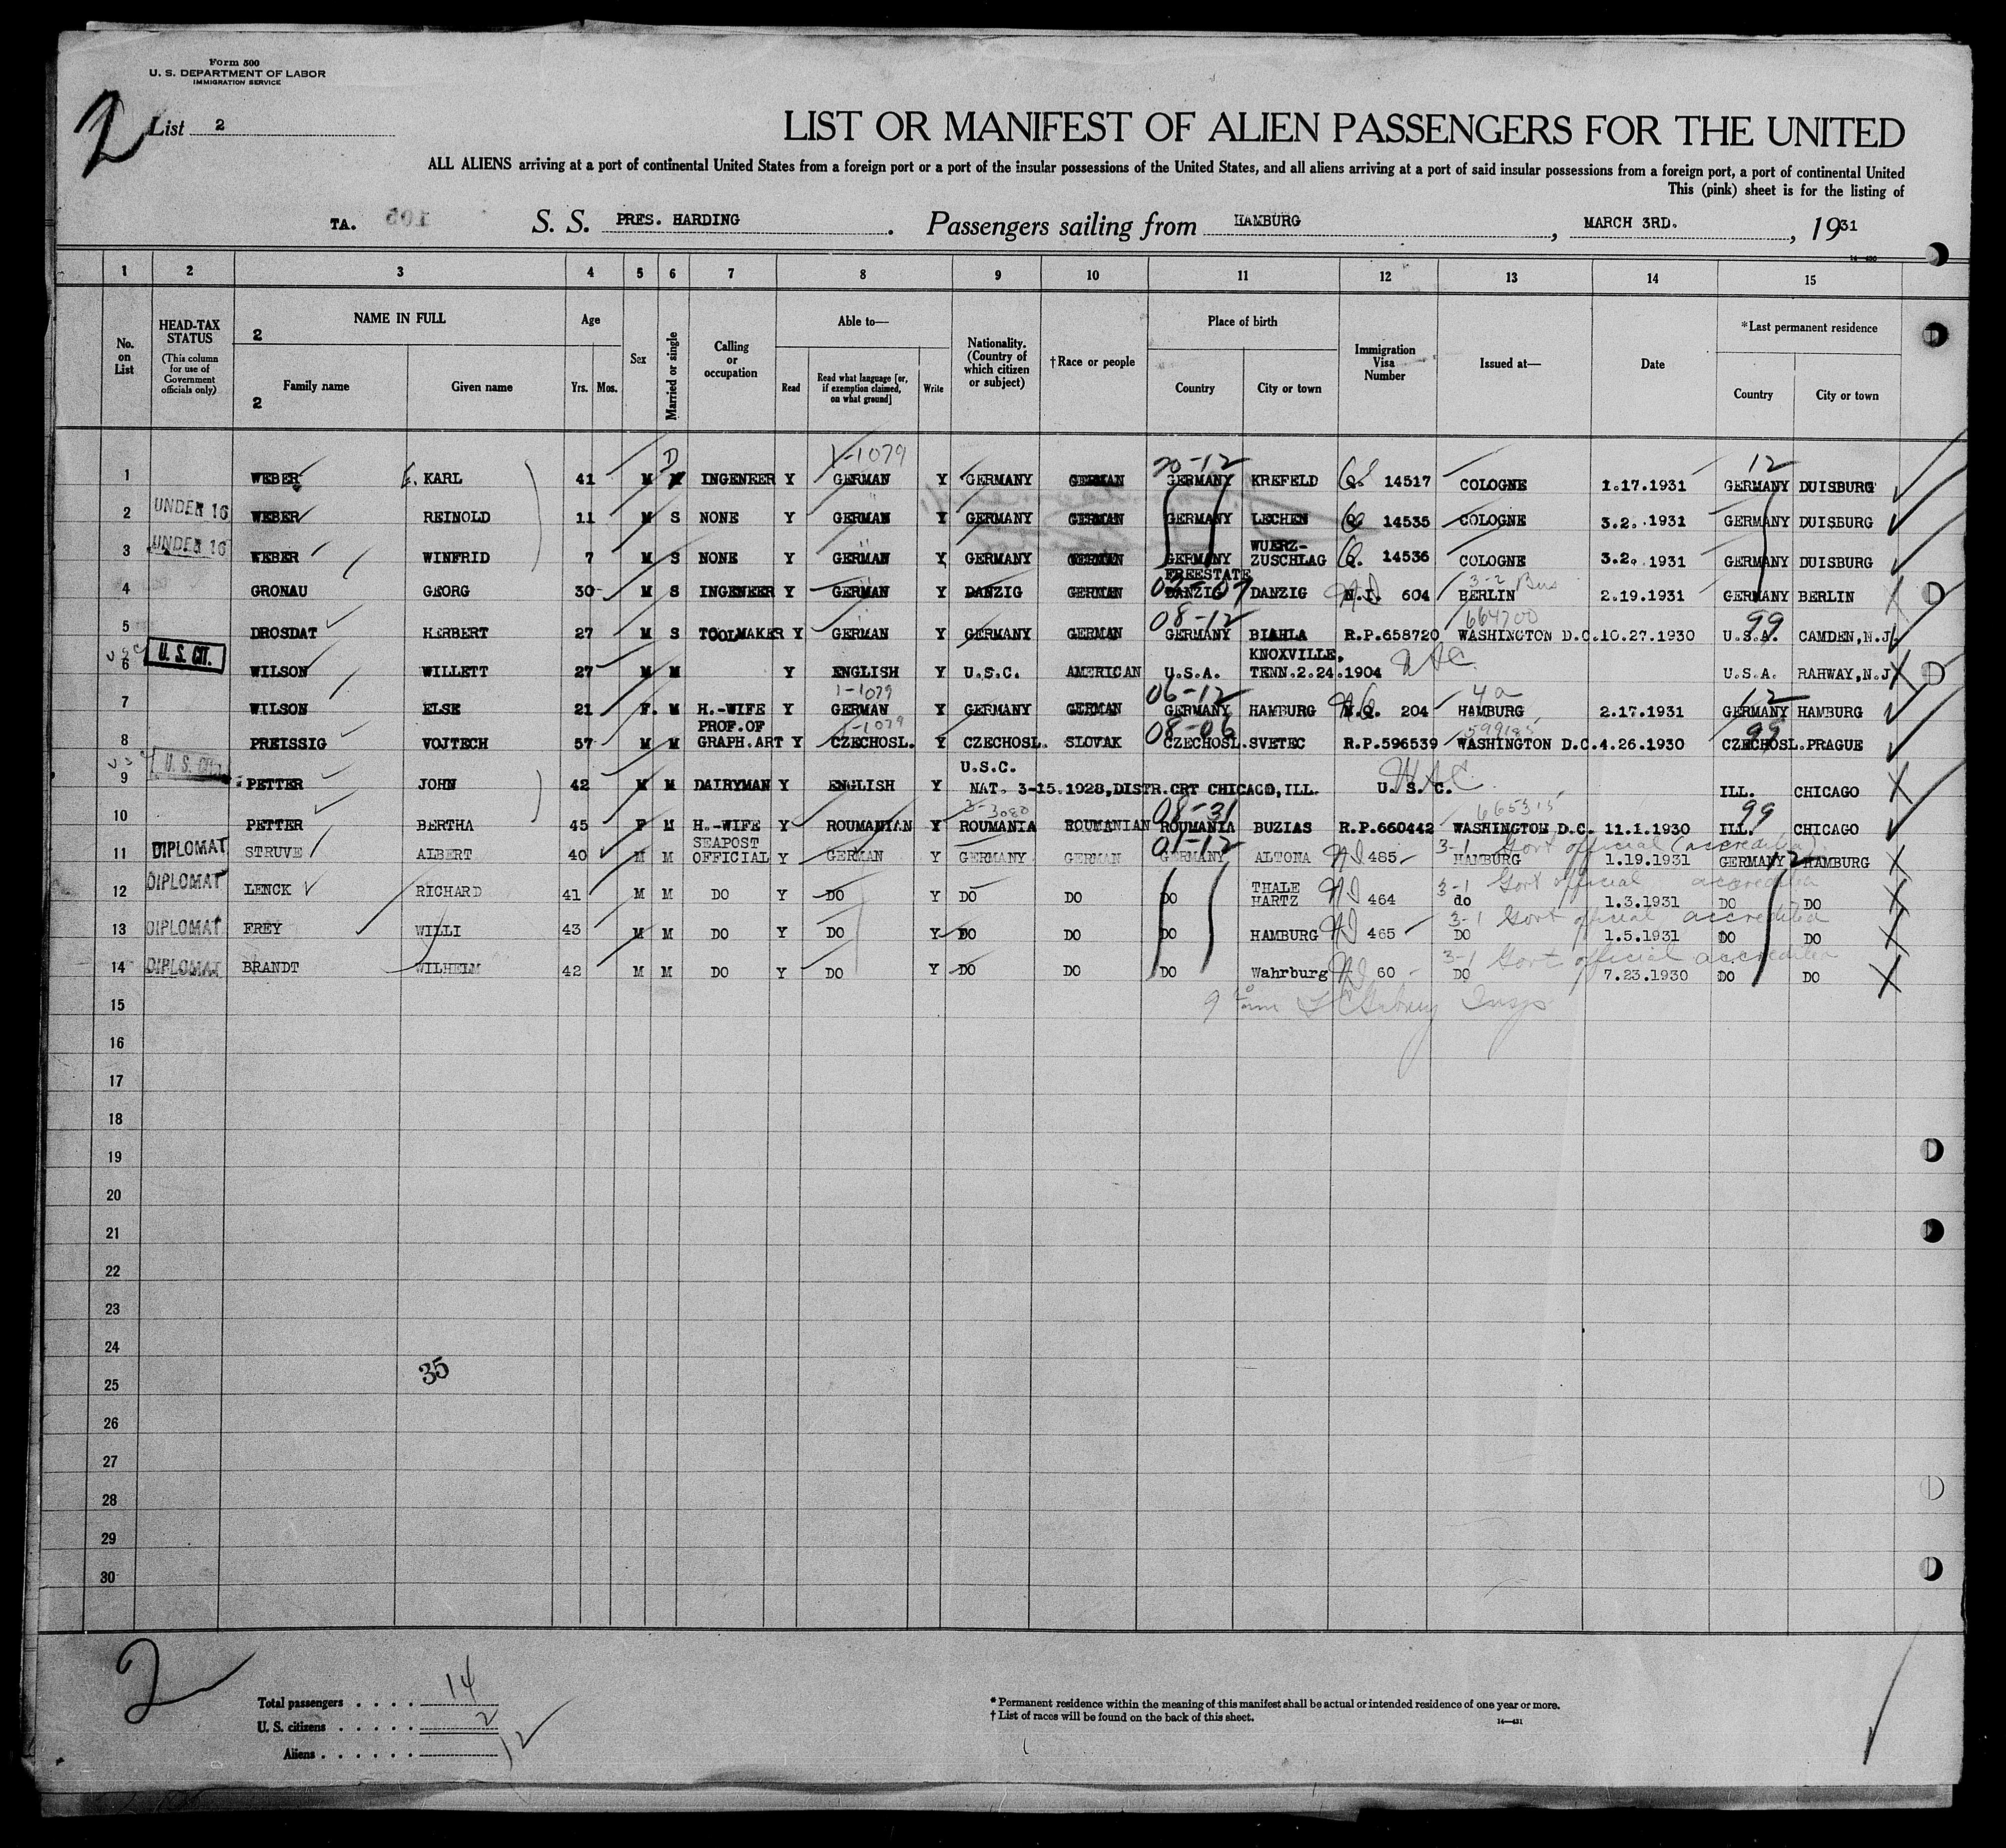 Form 500
U. S. DEPARTMENT OF LABOR
IMMIGRATION SERVICE
2
List 2
LIST OR MANIFEST OF ALIEN PASSENGERS FOR THE UNITED
ALL ALIENS arriving at a port of continental United States from a foreign port or a port of the insular possessions of the United States, and all aliens arriving at a port of said insular possessions from a foreign port, a port of continental United
This (pink) sheet is for the listing of
TA. 105 S. S. PRES. HARDING. Passengers sailing from HAMBURG, MARCH 3RD., 1931
14—430
1 2 3 4 5 6 7 8 9 10 11 12 13 14 15
No. on List
HEAD-TAX STATUS (This column for use of Government officials only)
NAME IN FULL 2 Family name Given name 2
Age Yrs. Mos.
Sex
Married or single
Calling or occupation
Able to— Read Read what language [or, if exemption claimed, on what ground] Write
Nationality. (Country of which citizen or subject)
†Race or people
Place of birth Country City or town
Immigration Visa Number
Issued at—
Date
*Last permanent residence Country City or town
D 1-1079 20-12 12
1 WEBER KARL 41 M INGENEER Y GERMAN Y GERMANY GERMAN GERMANY KREFELD Q. 14517 COLOGNE 1.17.1931 GERMANY DUISBURG
2 UNDER 16 WEBER REINOLD 11 M S NONE Y GERMAN Y GERMANY GERMAN GERMANY LECHEN Q. 14535 COLOGNE 3.2..1931 GERMANY DUISBURG
3 UNDER 16 WEBER WINFRID 7 M S NONE Y GERMAN Y GERMANY GERMAN GERMANY WUERZ-ZUSCHLAG Q. 14536 COLOGNE 3.2..1931 GERMANY DUISBURG
FREESTATE 3-2 Bus
4 GRONAU GEORG 30 M S INGENEER Y GERMAN Y DANZIG GERMAN DANZIG DANZIG N.I. 604 BERLIN 2.19.1931 GERMANY BERLIN
08-12 664700 99
5 DROSDAT HERBERT 27 M S TOOLMAKER Y GERMAN Y GERMANY GERMAN GERMANY BIAHLA R.P.658720 WASHINGTON D.C.10.27.1930 U.S.A. CAMDEN,N.J.
6 U. S. CIT. WILSON WILLETT 27 M M Y ENGLISH Y U.S.C. AMERICAN U.S.A. KNOXVILLE, TENN.2.24.1904 U.S.A. RAHWAY,N.J
1-1079 06-12 4a 12
7 WILSON ELSE 21 F. M H.-WIFE Y GERMAN Y GERMANY GERMAN GERMANY HAMBURG N.Q. 204 HAMBURG 2.17.1931 GERMANY HAMBURG
1-1079 08-06 99
8 PREISSIG VOJTECH 57 M M PROF.OF GRAPH.ART Y CZECHOSL. Y CZECHOSL. SLOVAK CZECHOSL. SVETEC R.P.596539 WASHINGTON D.C.4.26.1930 CZECHOSL. PRAGUE
9 U. S. CIT. PETTER JOHN 42 M M DAIRYMAN Y ENGLISH Y U.S.C. NAT. 3-15.1928,DISTR.CRT CHICAGO,ILL. U. S. C. ILL. CHICAGO
3080 08-31 665315 99
10 PETTER BERTHA 45 F M H.-WIFE Y ROUMANIAN Y ROUMANIA ROUMANIAN ROUMANIA BUZIAS R.P.660442 WASHINGTON D.C. 11.1.1930 ILL. CHICAGO
01-12 3-1 Govt official (accredited)
11 DIPLOMAT STRUVE ALBERT 40 M M SEAPOST OFFICIAL Y GERMAN Y GERMANY GERMAN GERMANY ALTONA NI 485 HAMBURG 1.19.1931 GERMANY HAMBURG
3-1 Govt official accredited
12 DIPLOMAT LENCK RICHARD 41 M M DO Y DO Y DO DO DO THALE HARTZ NI 464 do 1.3.1931 DO DO
3-1 Govt official accredited
13 DIPLOMAT FREY WILLI 43 M M DO Y DO Y DO DO DO HAMBURG NI 465 DO 1.5.1931 DO DO
3-1 Govt official accredited
14 DIPLOMAT BRANDT WILHELM 42 M M DO Y DO Y DO DO DO Wahrburg NI 60 DO 7.23.1930 DO DO
15
16
17
18
19
20
21
22
23
24
35
25
26
27
28
29
30
2
Total passengers . . . . 14
U. S. citizens . . . . . 2
Aliens . . . . . . 12
* Permanent residence within the meaning of this manifest shall be actual or intended residence of one year or more.
† List of races will be found on the back of this sheet.
14—431